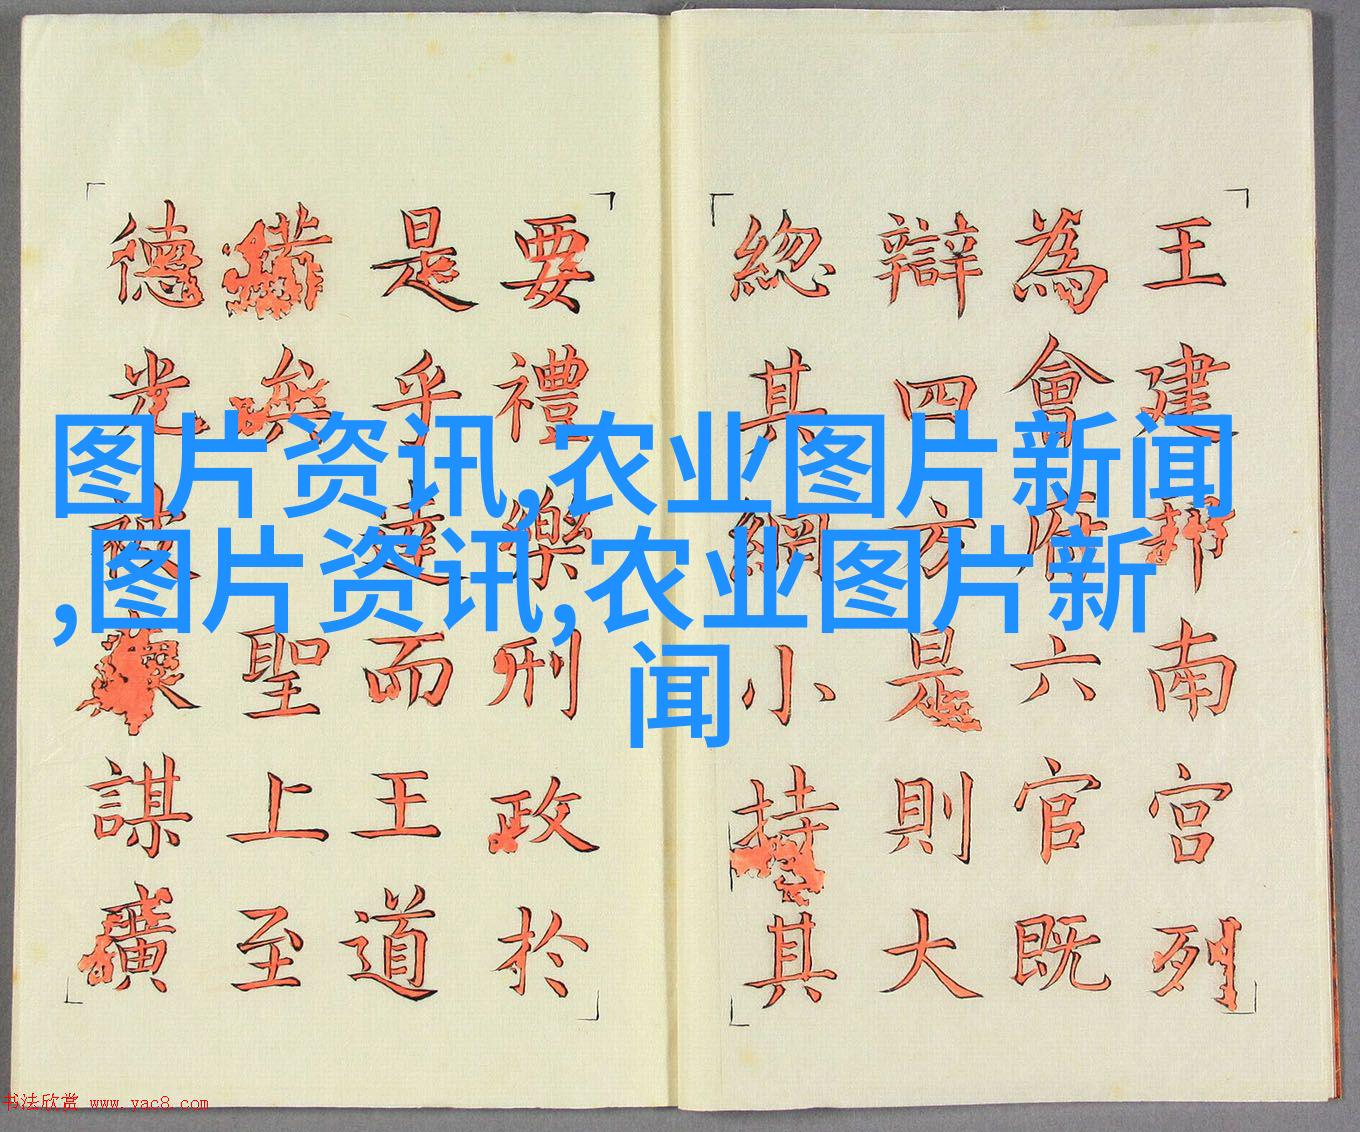 图片资讯,农业图片新闻
,图片资讯,农业图片新
闻
王建邦南宫列
為會府六官既
辯四方是則大
緫其綱小持其
要禮樂刑政於
是乎達而王道
矣聖上至
德光被謀
书法欣赏 www.yac8.com